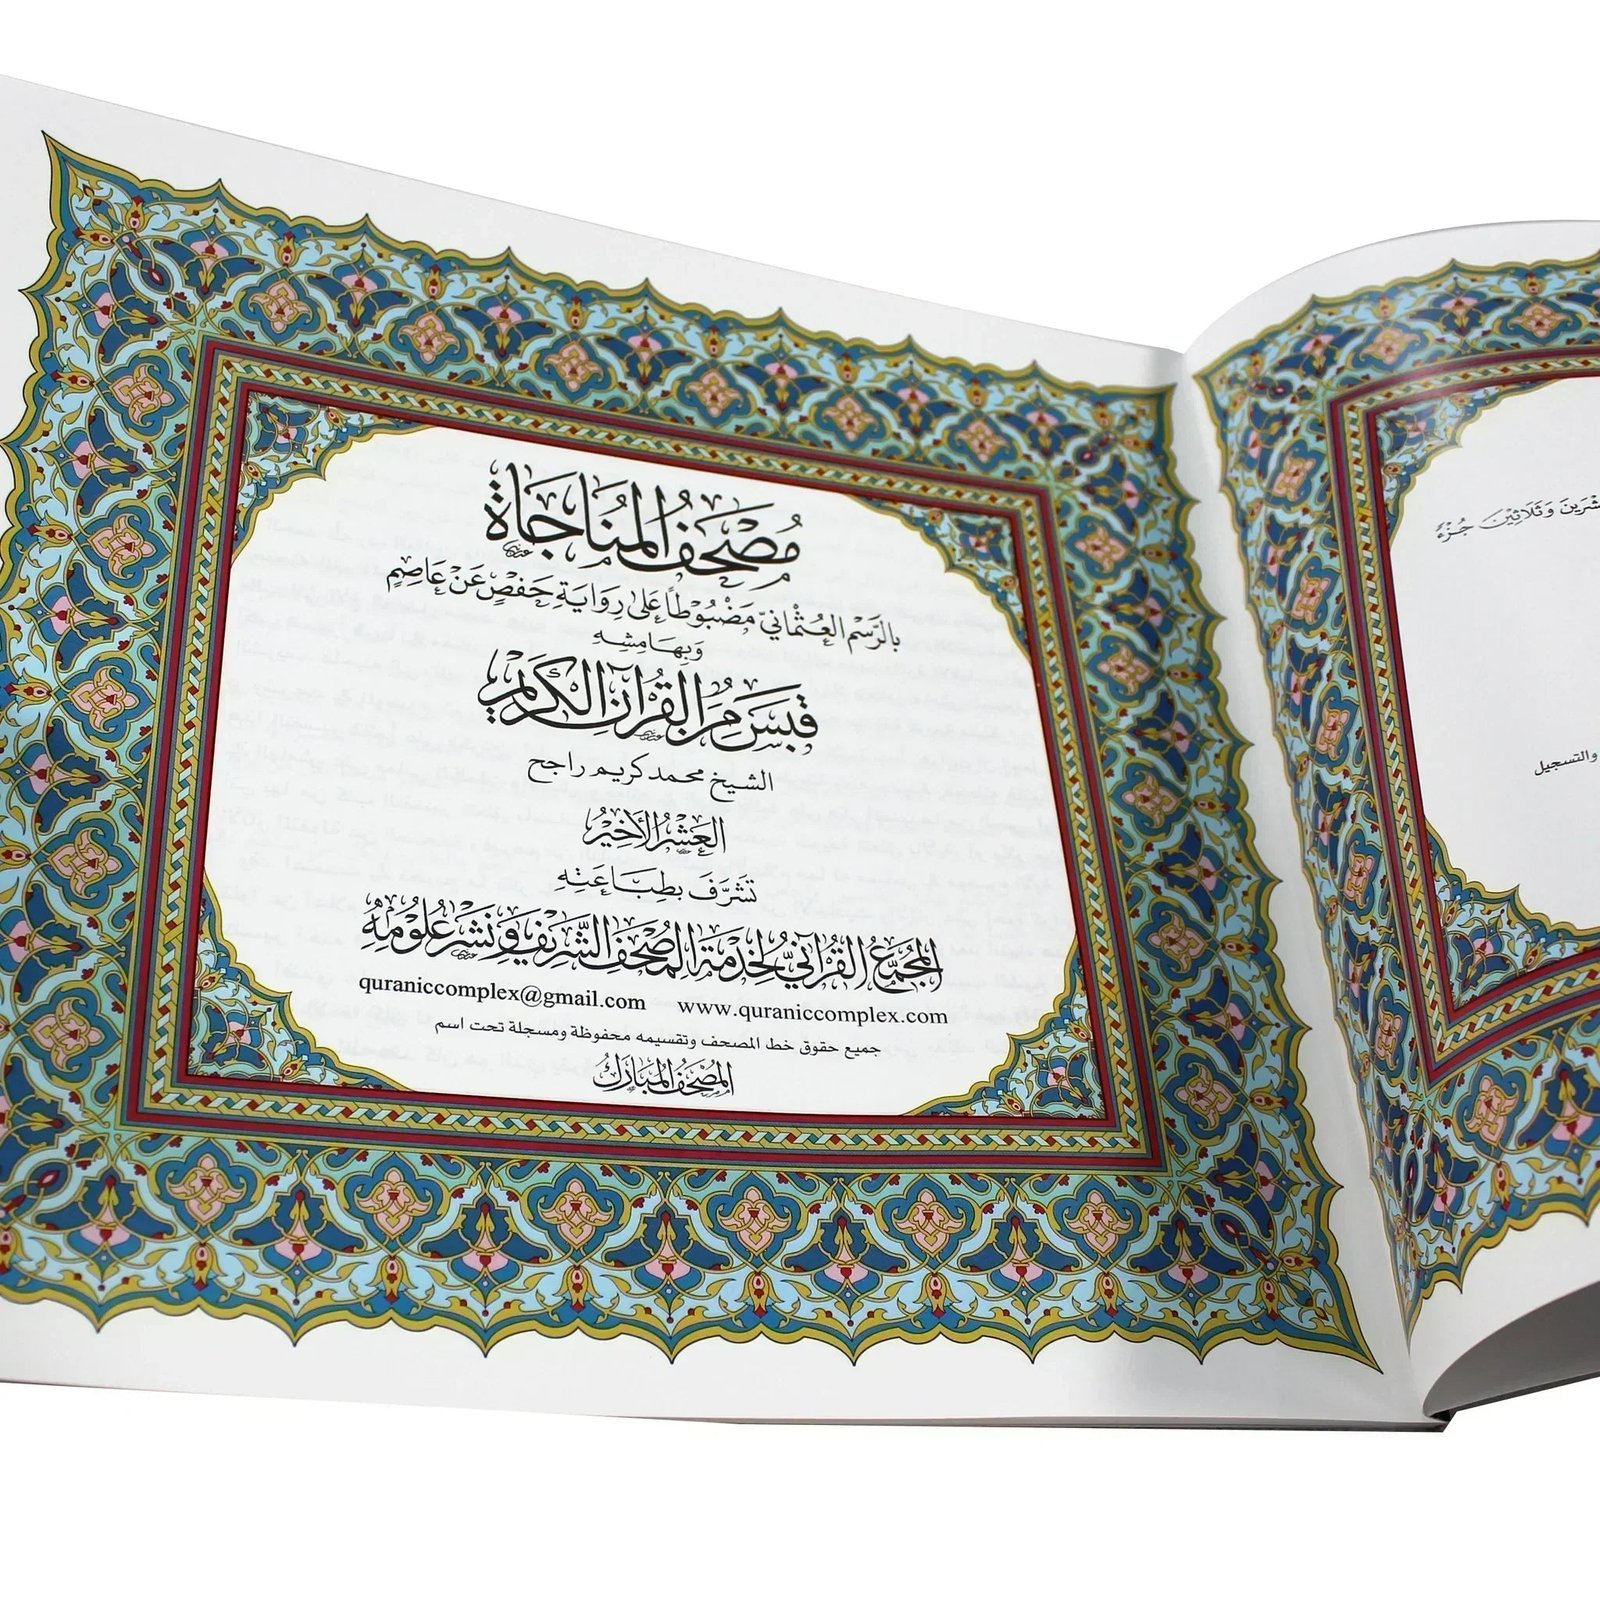 مُصْحَفُ المُنَاجَاة
بِالرَّسْمِ العُثْمَانِيّ مَضْبُوطًا عَلَى رِوَايَةِ حَفْصٍ عَنْ عَاصِمٍ
وَبِهَامِشِهِ
قَبَسٌ مِنَ القُرْآنِ الكَرِيْمِ
الشيخ محمد كريم راجح
العَشْرُ الأَخِيْرُ
تَشَرَّفَ بِطِبَاعَتِهِ
المُجَمَّعُ القُرْآنِيُّ لِخِدْمَةِ المُصْحَفِ الشَّرِيْفِ وَنَشْرِ عُلُومِهِ
quraniccomplex@gmail.com www.quraniccomplex.com
جميع حقوق خط المصحف وتقسيمه محفوظة ومسجلة تحت اسم
المُصْحَفُ المُبَارَكُ
وَثَلَاثِيْنَ جُزْءً
والتسجيل